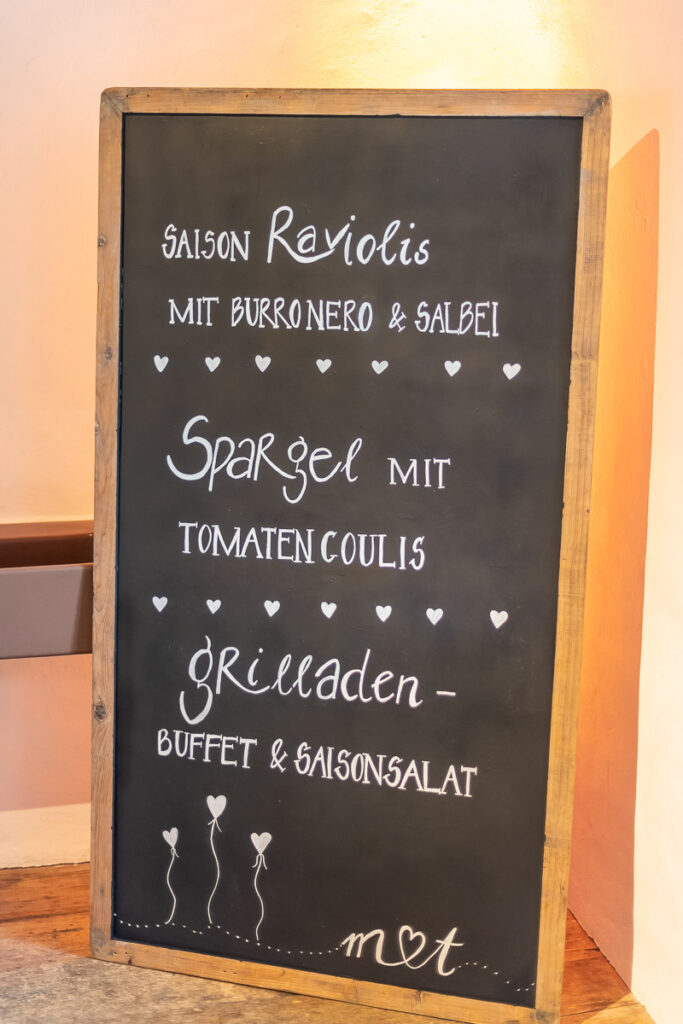 SAISON Raviolis
MIT BURRO NERO & SALBEI
Spargel MIT
TOMATEN COULIS
grilladen -
BUFFET & SAISONSALAT
m♥t